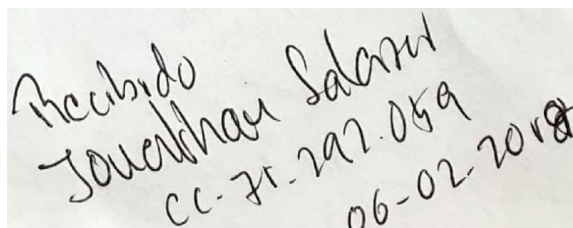 Recibido
Jonathan Salazar
CC-71.292.059
06-02-2018